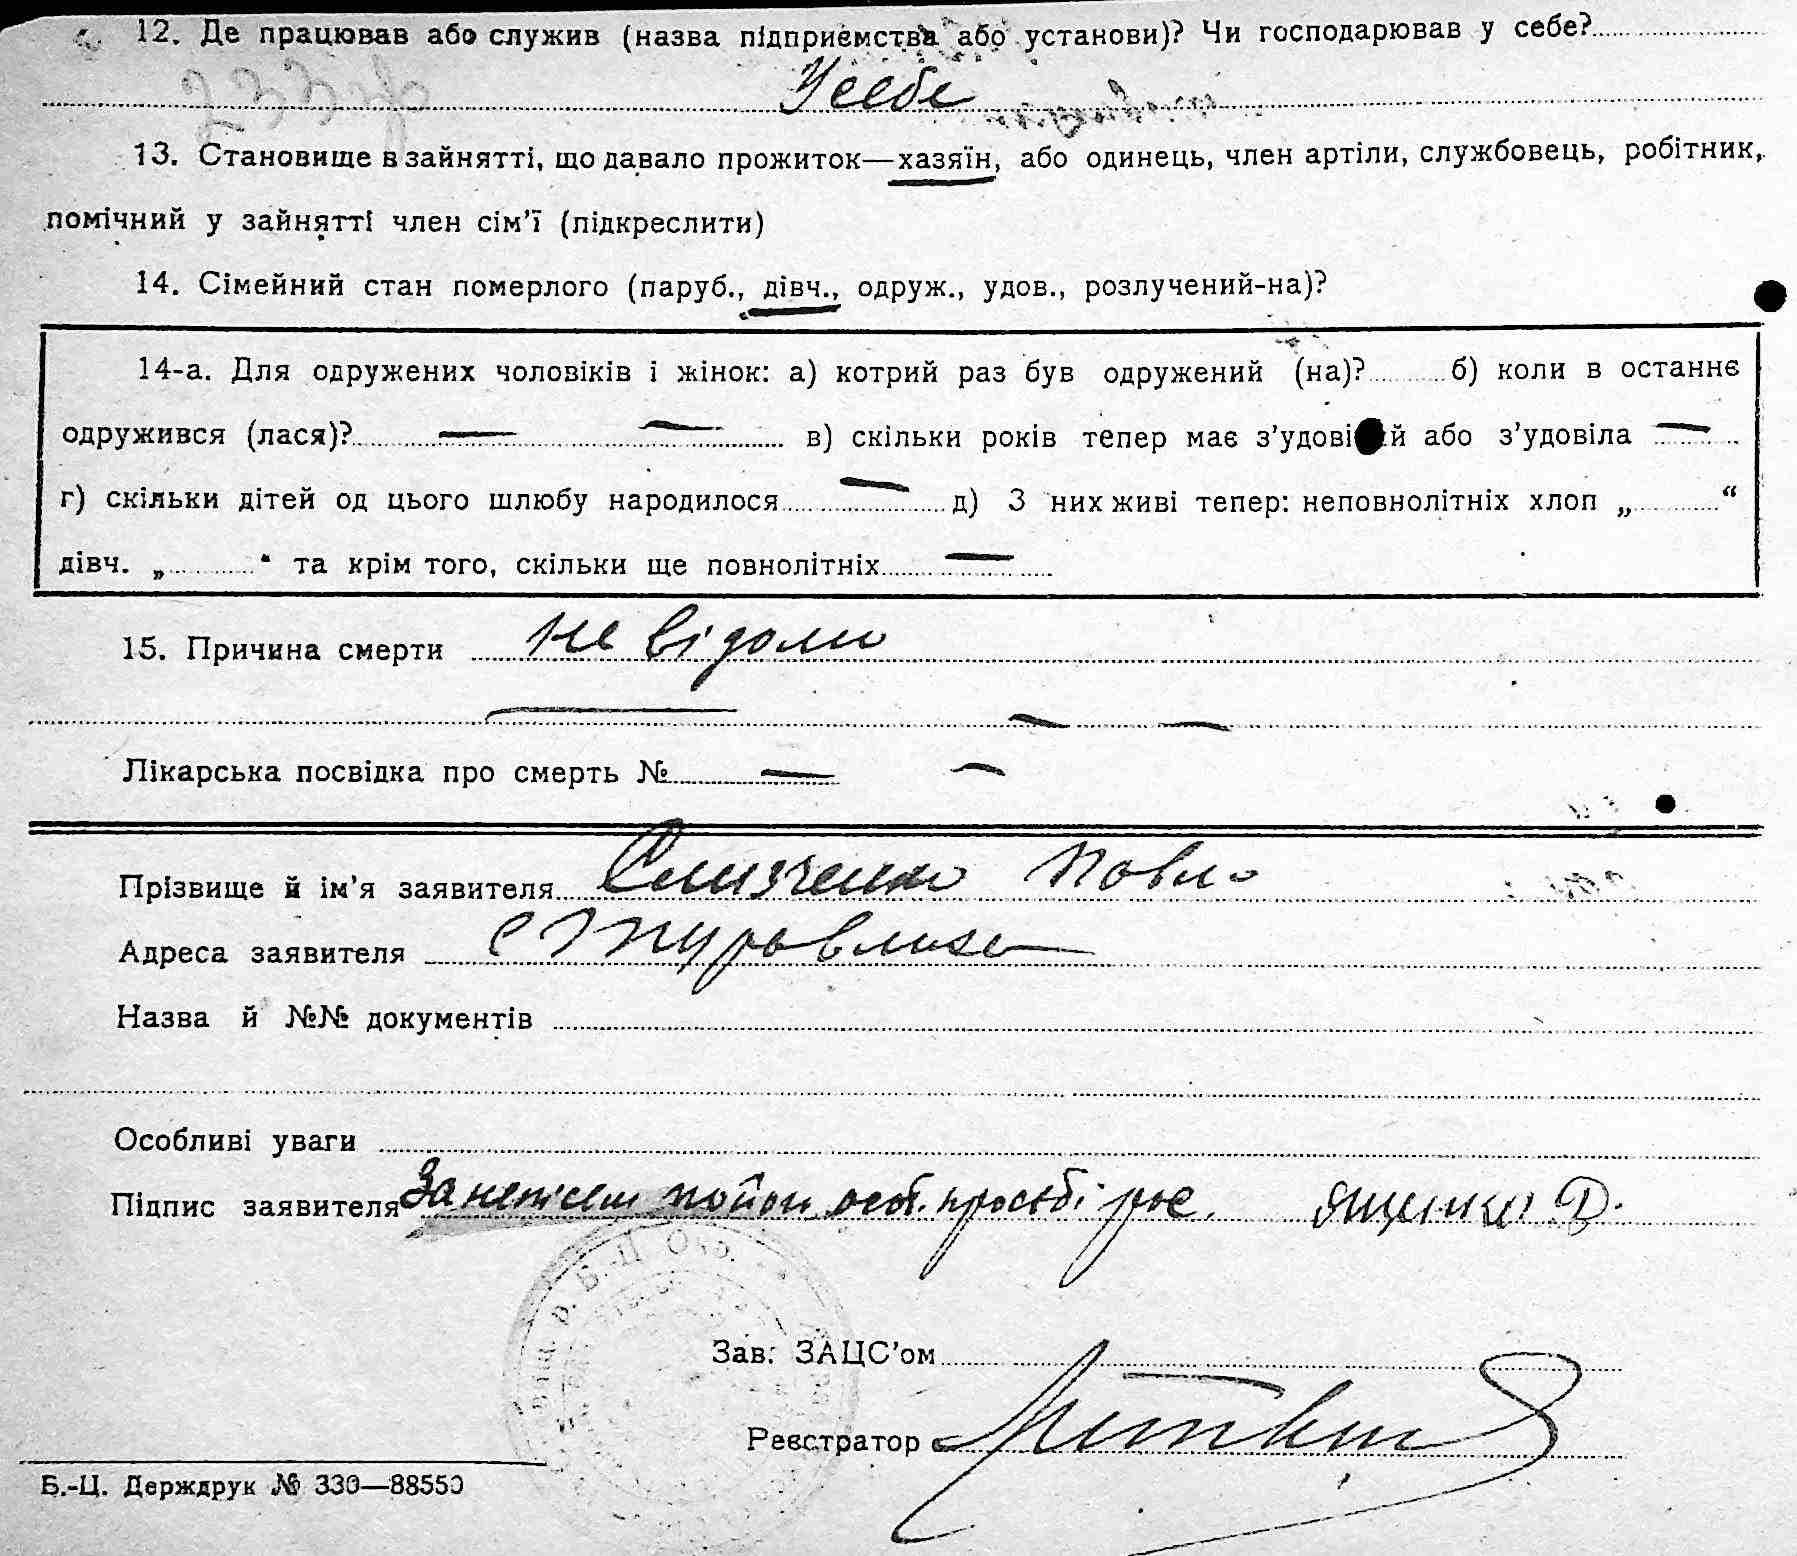 12. Де працював або служив (назва підприємства або установи)? Чи господарював у себе?
У себе
13. Становище в зайнятті, що давало прожиток—хазяїн, або одинець, член артіли, службовець, робітник,
помічний у зайнятті член сім'ї (підкреслити)
14. Сімейний стан померлого (паруб., дівч., одруж., удов., розлучений-на)?
14-а. Для одружених чоловіків і жінок: а) котрий раз був одружений (на)? б) коли в останнє
одружився (лася)? — — в) скільки років тепер має з'удові й або з'удовіла —
г) скільки дітей од цього шлюбу народилося — д) З них живі тепер: неповнолітніх хлоп „ “
дівч. „ “ та крім того, скільки ще повнолітніх —
15. Причина смерти не відоми
— — —
Лікарська посвідка про смерть № — —
Прізвище й ім'я заявителя Павло
Адреса заявителя с
Назва й №№ документів
Особливі уваги
Підпис заявителя За просьбі Ященко Д.
Б.-Ц.
Зав. ЗАЦС'ом
Реєстратор
Б.-Ц. Держдрук № 330—88550